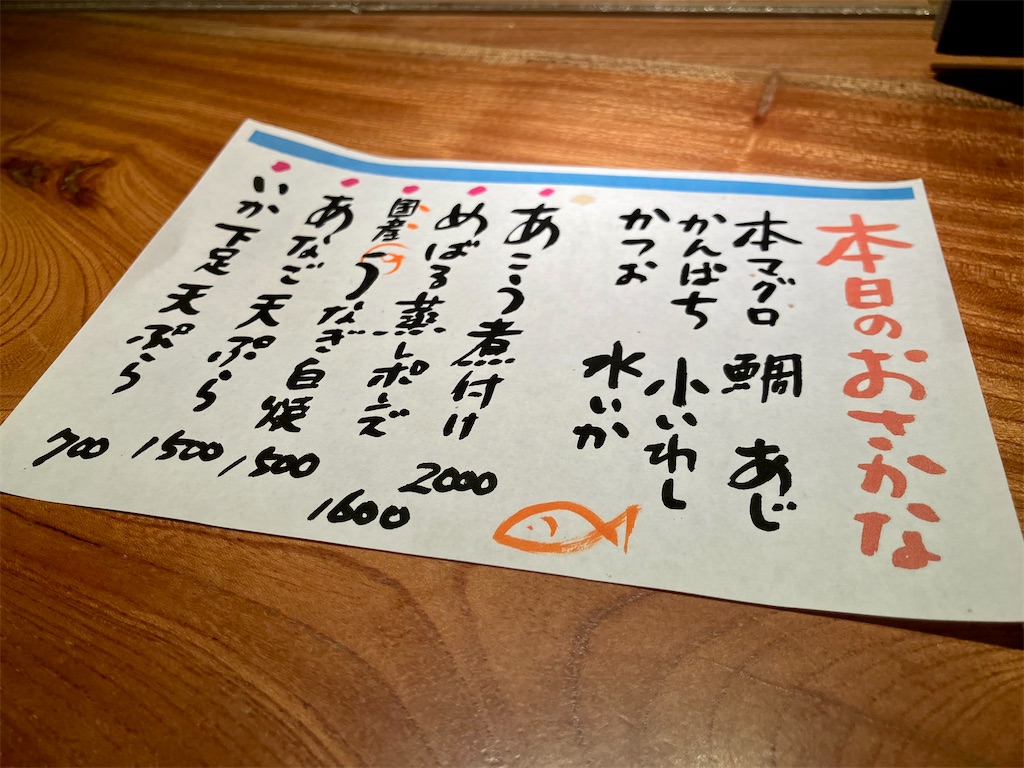 本日のおさかな
本マグロ 鯛 あじ
かんぱち 小いわし
かつお 水いか
あこう煮付け 2000
めばる蒸しポーズ 1600
国産うなぎ白焼 1500
あなご天ぷら 1500
いか下足天ぷら 700